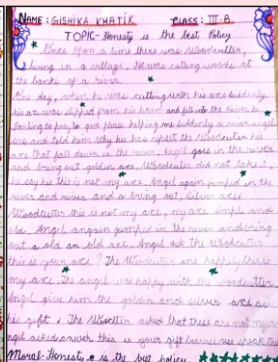 NAME: GISHIKA KHATIK CLASS: III-B
TOPIC- Honesty is the best Policy
Once upon a time there was Woodcutter,
living in a village. He was cutting woods at
the banks of a river.
One day, when he was cutting with his axe suddenly
his axe was slipped from his hand and fall into the river he
starting to pray to god please helping me suddenly a river angel
and told him why he has upset the Woodcutter his
axe that fall down in the river. Angel goes in the river
and bring out golden axe, Woodcutter did not take it,
he say he this is not my axe. Angel again jumped in the
river and river and a bring out, silver axe.
Woodcutter this is not my axe, my axe simple and
old. Angel again jumped in the river and bring
out a old an old axe. Angel ask the Woodcutter
this is your axe? The Woodcutter are happily this is
my axe. The angel was happy with the woodcutter
Angel give him the golden and silver axe as
his gift. The Woodcutter asked that these are not my
angel asked answer this is your gift because you speak
Moral- Honesty is the best policy